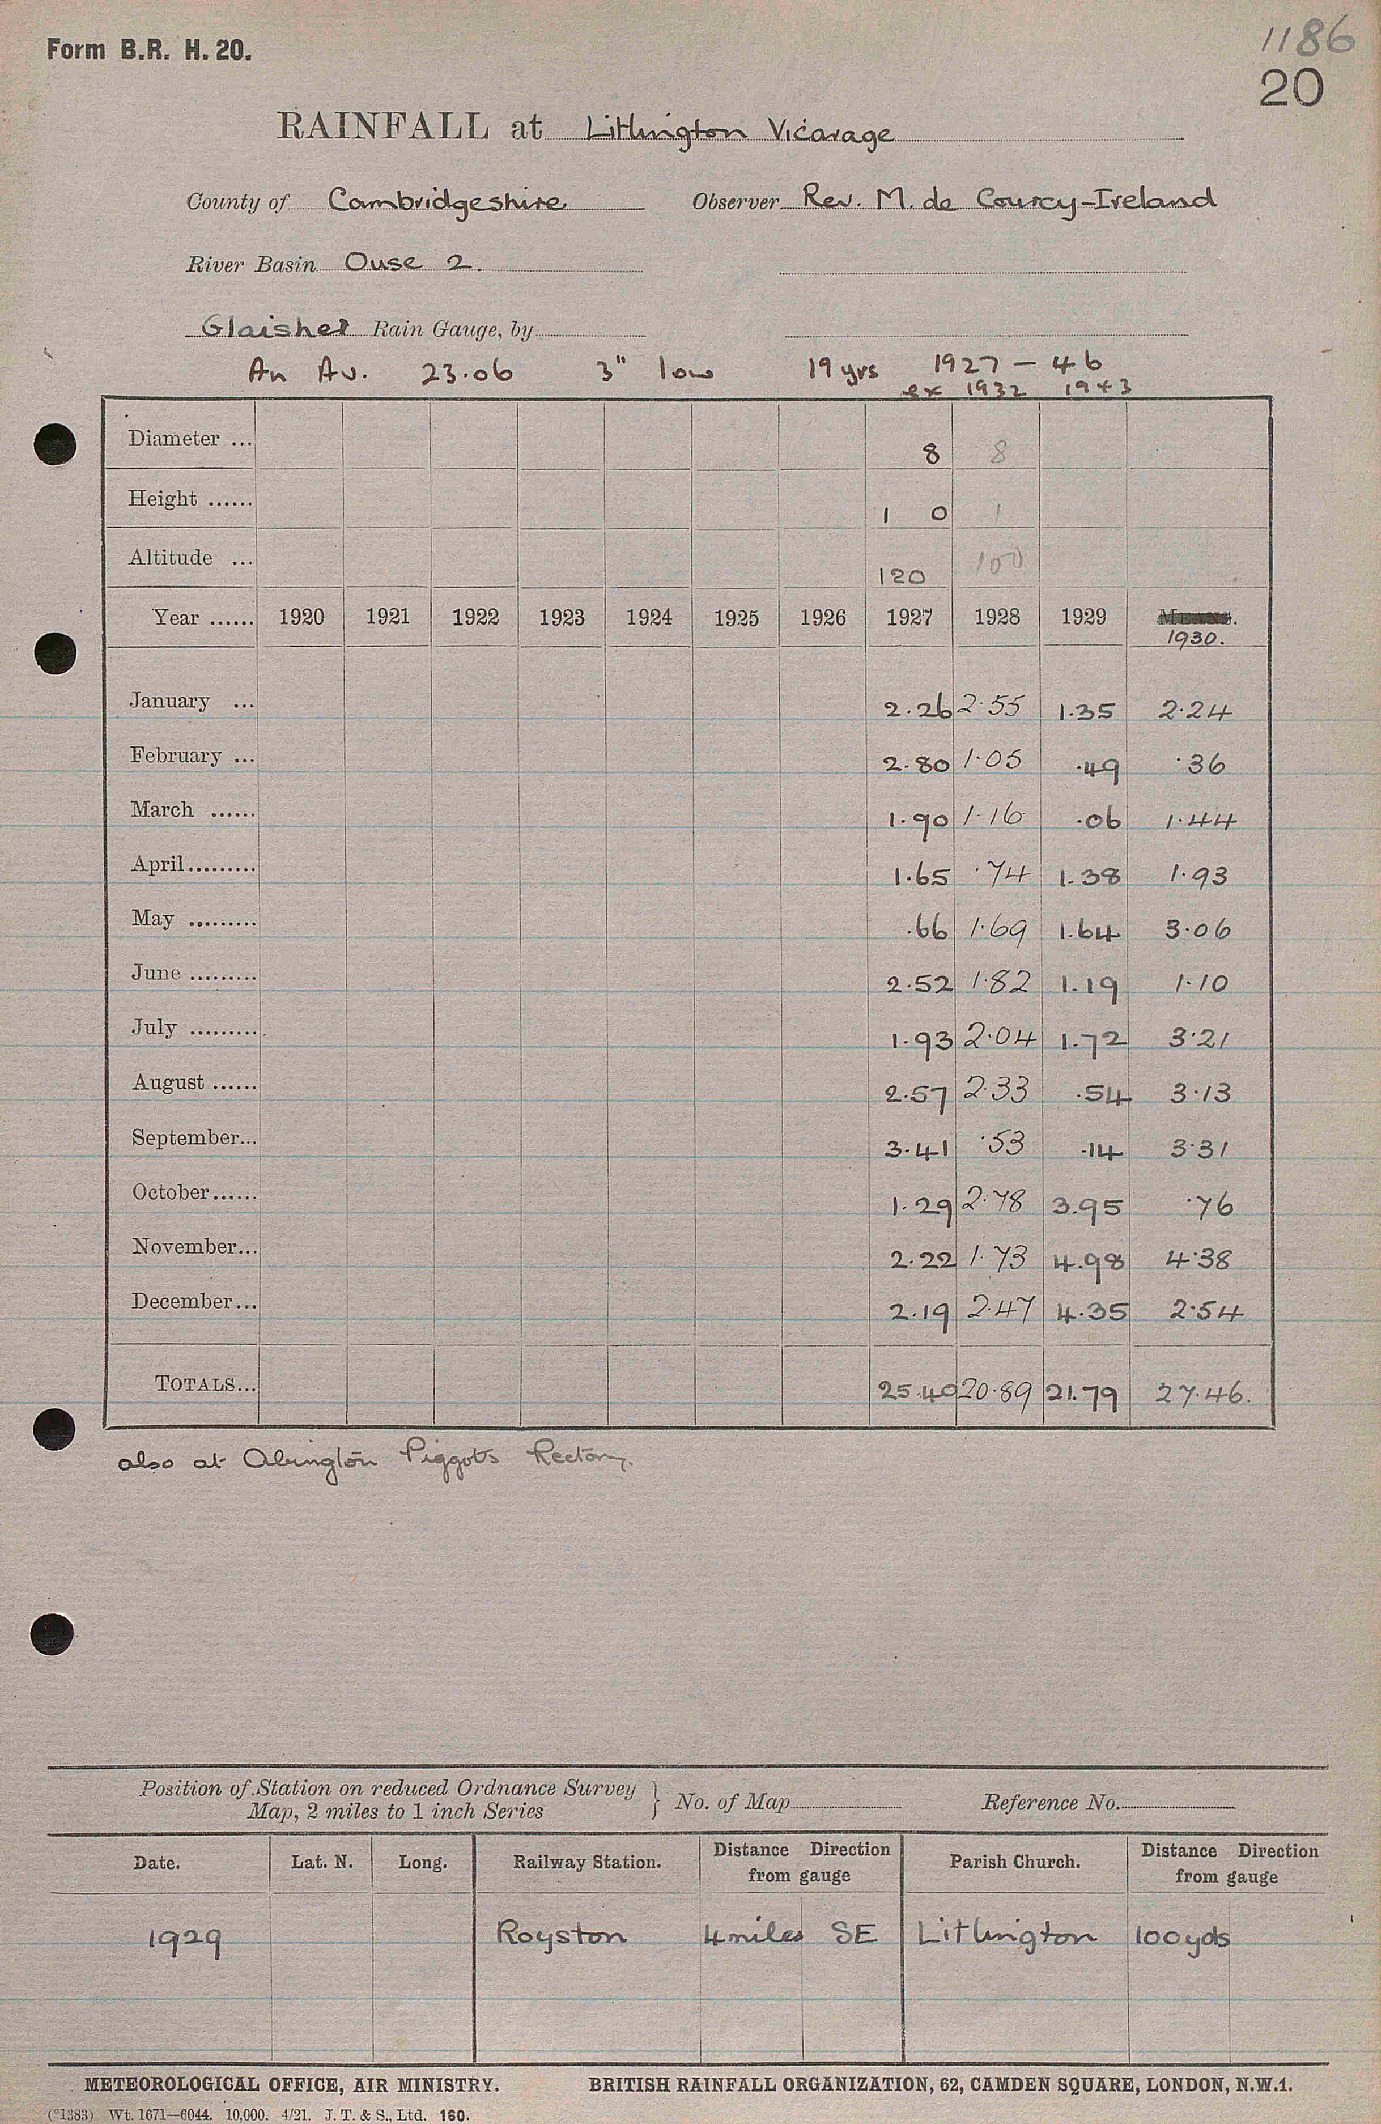 Form B.R. H. 20.
1186
20
RAINFALL at Litlington Vicarage
County of Cambridgeshire Observer Rev. M. de Courcy-Ireland
River Basin Ouse 2.
Glaisher Rain Gauge, by
An Av. 23.06 3" low 19 yrs 1927 - 46
ex 1932 1943
Diameter ... 8 8
Height ...... 1 0 1
Altitude ... 120 100
Year ...... 1920 1921 1922 1923 1924 1925 1926 1927 1928 1929
1930.
January ... 2.26 2.55 1.35 2.24
February ... 2.80 1.05 .49 .36
March ...... 1.90 1.16 .06 1.44
April......... 1.65 .74 1.38 1.93
May ......... .66 1.69 1.64 3.06
June ......... 2.52 1.82 1.19 1.10
July ......... 1.93 2.04 1.72 3.21
August ...... 2.57 2.33 .54 3.13
September... 3.41 .53 .14 3.31
October...... 1.29 2.78 3.95 .76
November... 2.22 1.73 4.98 4.38
December... 2.19 2.47 4.35 2.54
TOTALS... 25.40 20.89 21.79 27.46.
also at Abington Piggotts Rectory.
Position of Station on reduced Ordnance Survey
Map, 2 miles to 1 inch Series } No. of Map Reference No.
Date. Lat. N. Long. Railway Station. Distance Direction from gauge Parish Church. Distance Direction from gauge
1929 Royston 4 miles SE Litlington 100 yds
METEOROLOGICAL OFFICE, AIR MINISTRY. BRITISH RAINFALL ORGANIZATION, 62, CAMDEN SQUARE, LONDON, N.W.1.
(*1383) Wt. 1671—6044. 10,000. 4/21. J. T. & S., Ltd. 160.